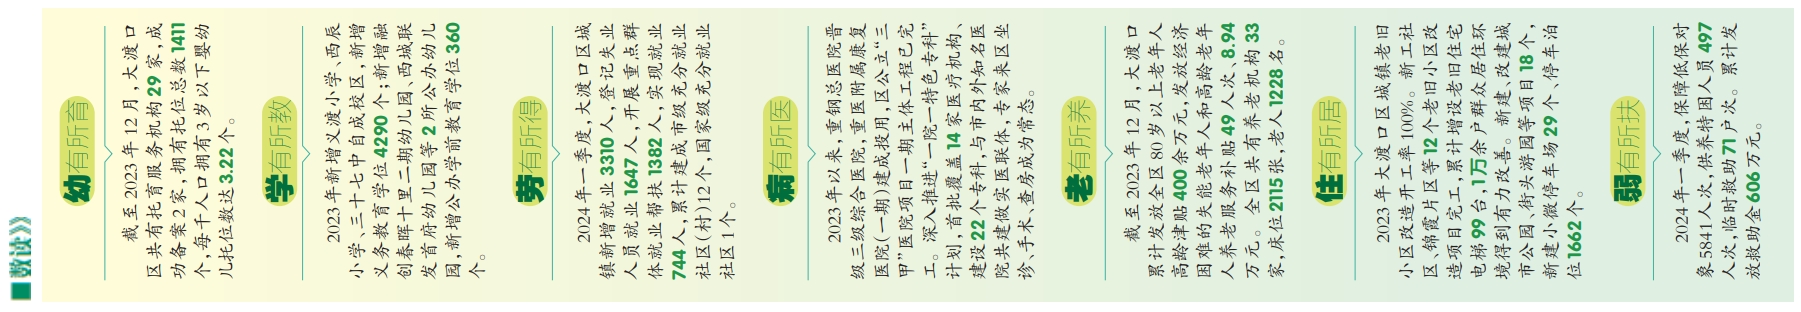 ■数读》》
幼有所育
截至2023年12月，大渡口
区共有托育服务机构29家，成
功备案2家，拥有托位总数1411
个，每千人口拥有3岁以下婴幼
儿托位数达3.22个。
学有所教
2023年新增义渡小学、西辰
小学、三十七中自成校区，新增
义务教育学位4290个；新增融
创春晖十里二期幼儿园、西城联
发首府幼儿园等2所公办幼儿
园，新增公办学前教育学位360
个。
劳有所得
2024年一季度，大渡口区城
镇新增就业3310人，登记失业
人员就业1647人，开展重点群
体就业帮扶1382人，实现就业
744人，累计建成市级充分就业
社区（村）12个，国家级充分就业
社区1个。
病有所医
2023年以来，重钢总医院晋
级三级综合医院，重医附属康复
医院（一期）建成投用，区公立“三
甲”医院项目一期主体工程已完
工。深入推进“一院一特色专科”
计划，首批覆盖14家医疗机构、
建设22个专科，与市内外知名医
院共建做实医联体，专家来区坐
诊、手术、查房成为常态。
老有所养
截至2023年12月，大渡口
累计发放全区80岁以上老年人
高龄津贴400余万元，发放经济
困难的失能老年人和高龄老年
人养老服务补贴49人次、8.94
万元。全区共有养老机构33
家，床位2115张，老人1228名。
住有所居
2023年大渡口区城镇老旧
小区改造开工率100%。新工社
区、锦霞片区等12个老旧小区改
造项目完工，累计增设老旧住宅
电梯99台，1万余户群众居住环
境得到有力改善。新建、改建城
市公园、街头游园等项目18个，
新建小微停车场29个、停车泊
位1662个。
弱有所扶
2024年一季度，保障低保对
象5841人次，供养特困人员497
人次，临时救助71户次。累计发
放救助金606万元。